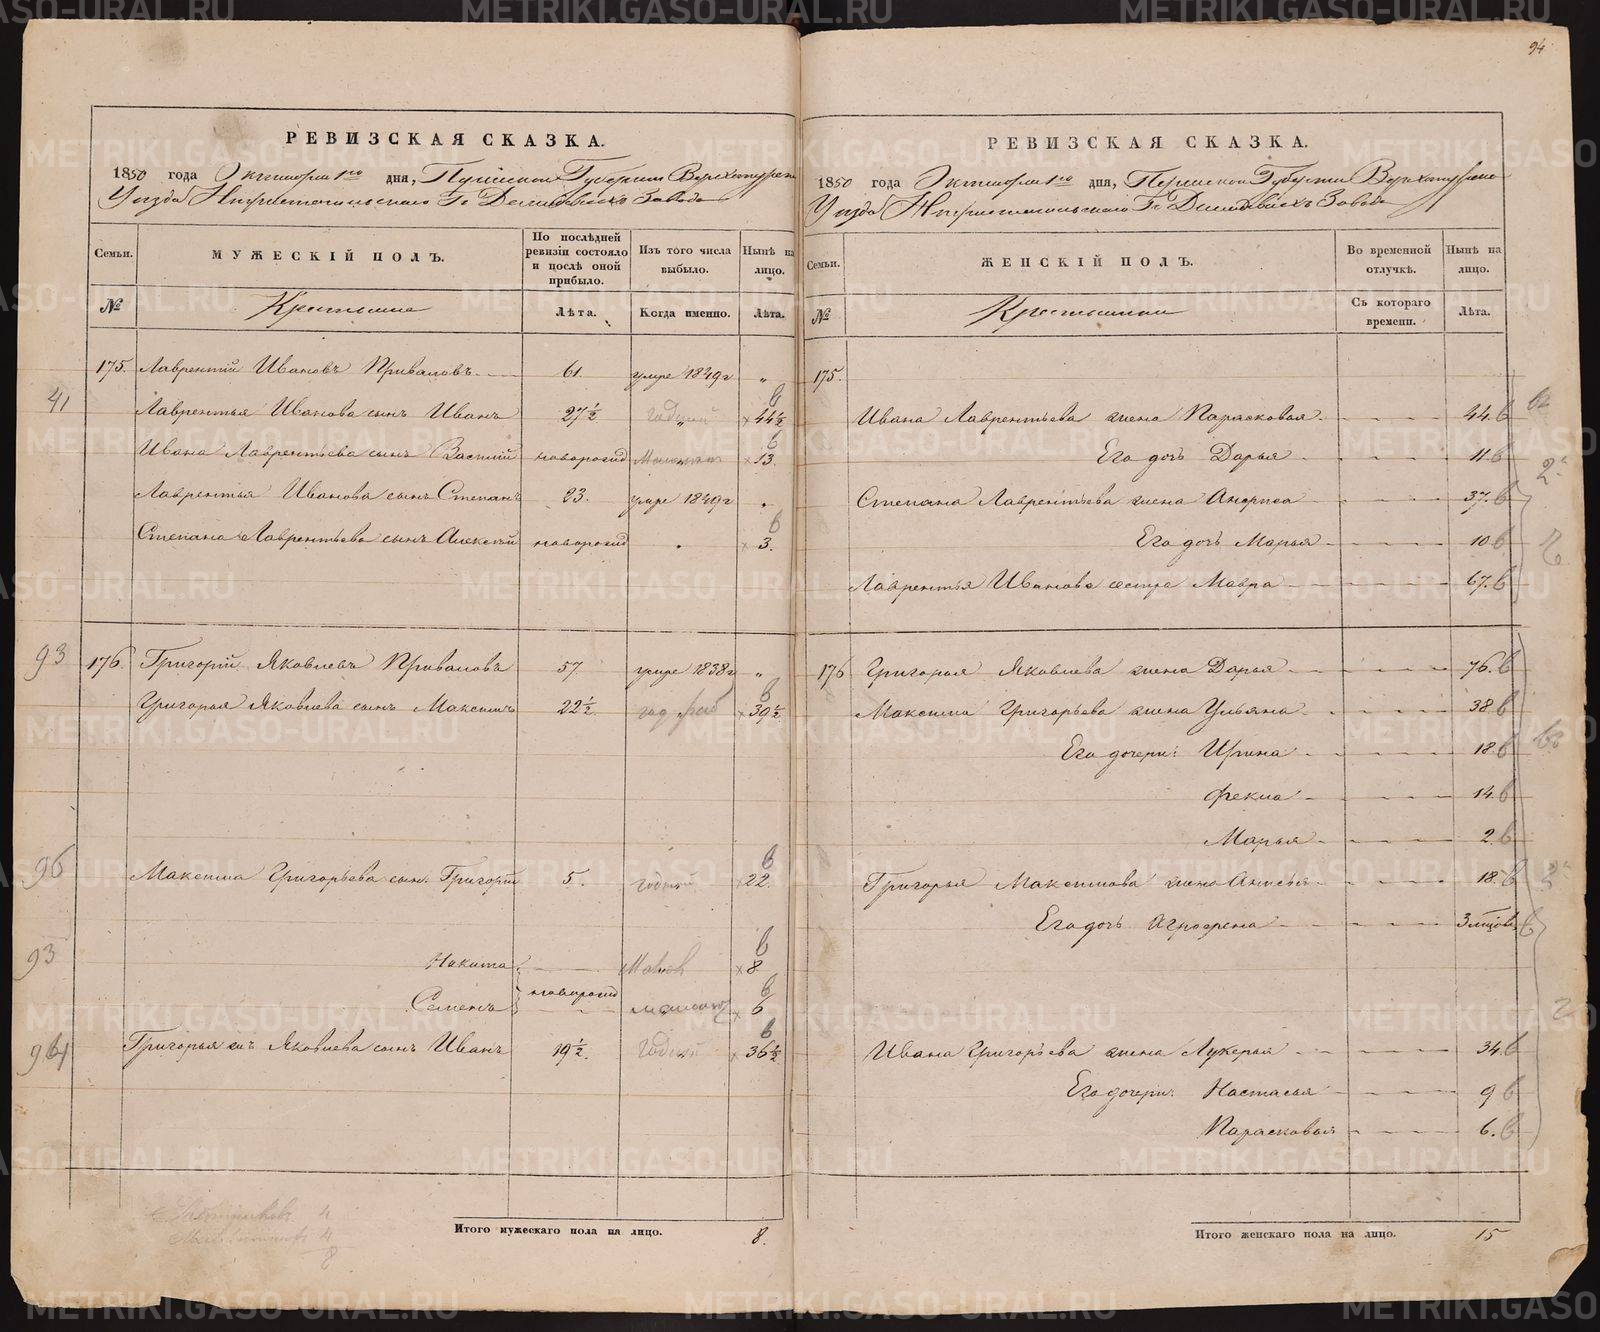 94
РЕВИЗСКАЯ СКАЗКА.
1850 года Октября 1го дня, Пермской Губернии Верхотурскаго
Уезда Нижнетагильскаго Гг Демидовыхъ Завода
Семьи.
МУЖЕСКІЙ ПОЛЪ.
По послѣдней ревизіи состояло и послѣ оной прибыло.
Изъ того числа выбыло.
Нынѣ на лицо.
№
Крестьяне
Лѣта.
Когда именно.
Лѣта.
175. Лаврентий Ивановъ Приваловъ. 61 умре 1849г "
41 Лаврентья Иванова сынъ Иванъ 27½ годный 44½
Ивана Лаврентьева сынъ Василий новорожд 13.
Лаврентья Иванова сынъ Степанъ 23. умре 1849г "
Степана Лаврентьева сынъ Алексѣй новорожд " 3.
93 176. Григорий Яковлевъ Приваловъ 57 умре 1838г "
Григорья Яковлева сынъ Максимъ 22½ 39½
96 Максима Григорьева сын. Григорий 5. годный 22.
93 Никита 8
Семенъ новорожд 6
961 Григорья Яковлева сынъ Иванъ 19½. годный 36½
4
4
8
Итого мужескаго пола на лицо. 8.
РЕВИЗСКАЯ СКАЗКА.
1850 года Октября 1го дня, Пермской Губернии Верхотурскаго
Уезда Нижнетагильскаго Гг Демидовыхъ Завода
Семьи.
ЖЕНСКІЙ ПОЛЪ.
Во временной отлучкѣ.
Нынѣ на лицо.
№
Крестьянки
Съ котораго времени.
Лѣта.
175.
Ивана Лаврентьева жена Парасковья 44.
Его дочь Дарья 11.
Степана Лаврентьева жена Анфиса 37.
Его дочь Марья 10
Лаврентья Иванова сестра Мавра 67.
176 Григорья Яковлева жена Дарья 76.
Максима Григорьева жена Ульяна 38
Его дочери: Ирина 18.
Фекла 14.
Марья 2.
Григорья Максимова жена Анисья 18.
Его дочь Агрофена 3 мѣсяцов
Ивана Григорьева жена Лукерья 34.
Его дочери: Настасья 9
Парасковья 6.
Итого женскаго пола на лицо. 15
METRIKI.GASO-URAL.RU